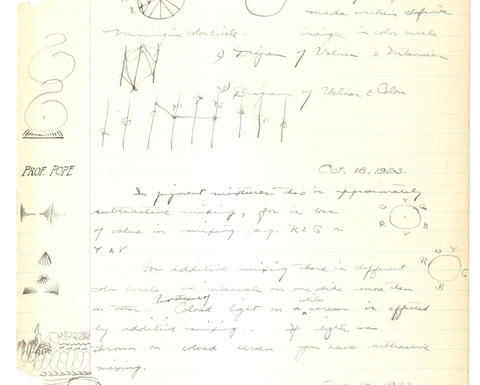 made within definite
Mixing in color circle. Triangle in color circle
1) Diagram of Values & Intensities
2) Diagram of Values & Color
PROF. POPE
Oct. 16, 1923.
In pigment mixtures there is approximately
subtractive mixing, for is loss
of value in mixing e.g. R & G =
Y & V
O Y G
R B
V
For additive mixing there is different
color circle — intervals on one side more than
on other. Two streams of Colored light on a white screen is effected
by additive mixing. If lights are
thrown on colored screen you have subtractive
mixing.
O Y
R G
B